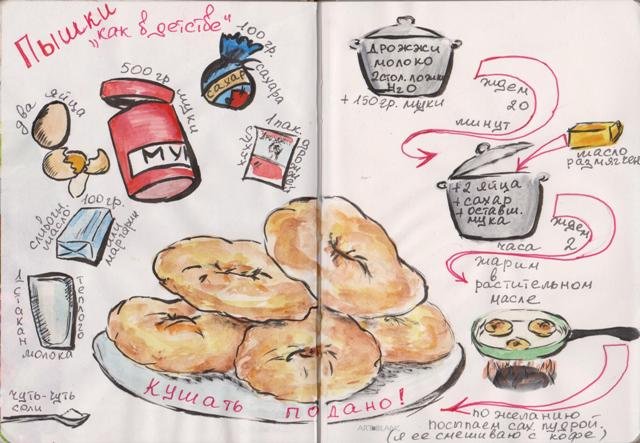 Пышки
„как в детстве“
100 гр.
сахара
сахар
500 гр
муки
МУ
два яйца
1 пак.
сухих
дрожжей
сливочн.
масло
100 гр.
или
маргарин
1 стакан
теплого
молока
чуть-чуть
соли
кушать подано!
дрожжи
молоко
2 стол. ложки
H2O
+ 150 гр. муки
ждем
20
минут
масло
размягчен.
+ 2 яйца
+ сахар
+ оставш.
мука
ждем
2
часа
жарим
в
растительном
масле
по желанию
посыпаем сах. пудрой.
(я ее смешиваю с кофе)
ARTOBLANK